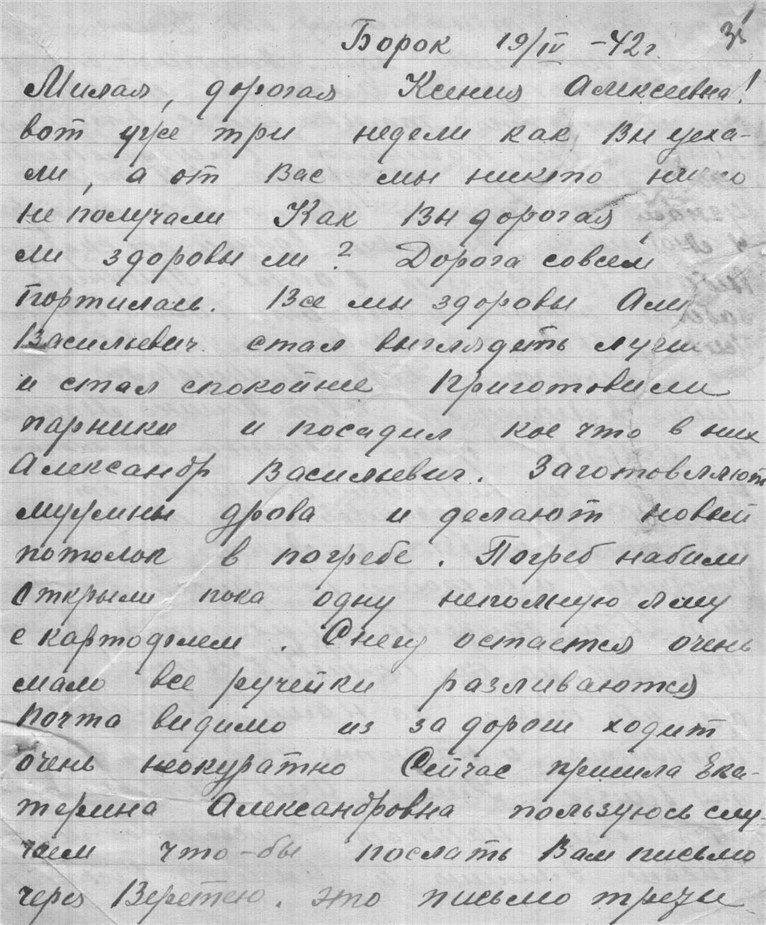 Борок 19/IV -42 г.
Милая, дорогая Ксения Алексеевна!
вот уже три недели как Вы уеха-
ли, а от Вас мы никто ниче
не получали Как Вы дорогая,
ли здоровы ли? Дорога совсем
портилась. Все мы здоровы Але
Васильевич стал выглядеть лучш
и стал спокойнее Приготовили
парники и посадил кое что в них
Александр Васильевич. Заготовляют
мужчины дрова и делают новый
потолок в погребе. Погреб набили
открыли пока одну неполную яму
с картофелем. Снегу остается очень
мало все ручейки разливаются
Почта видимо из за дороги ходит
очень неокуратно Сейчас пришла Ека-
терина Александровна пользуюсь слу-
чаем что-бы послать Вам письмо
через Веретею. это письмо трезу